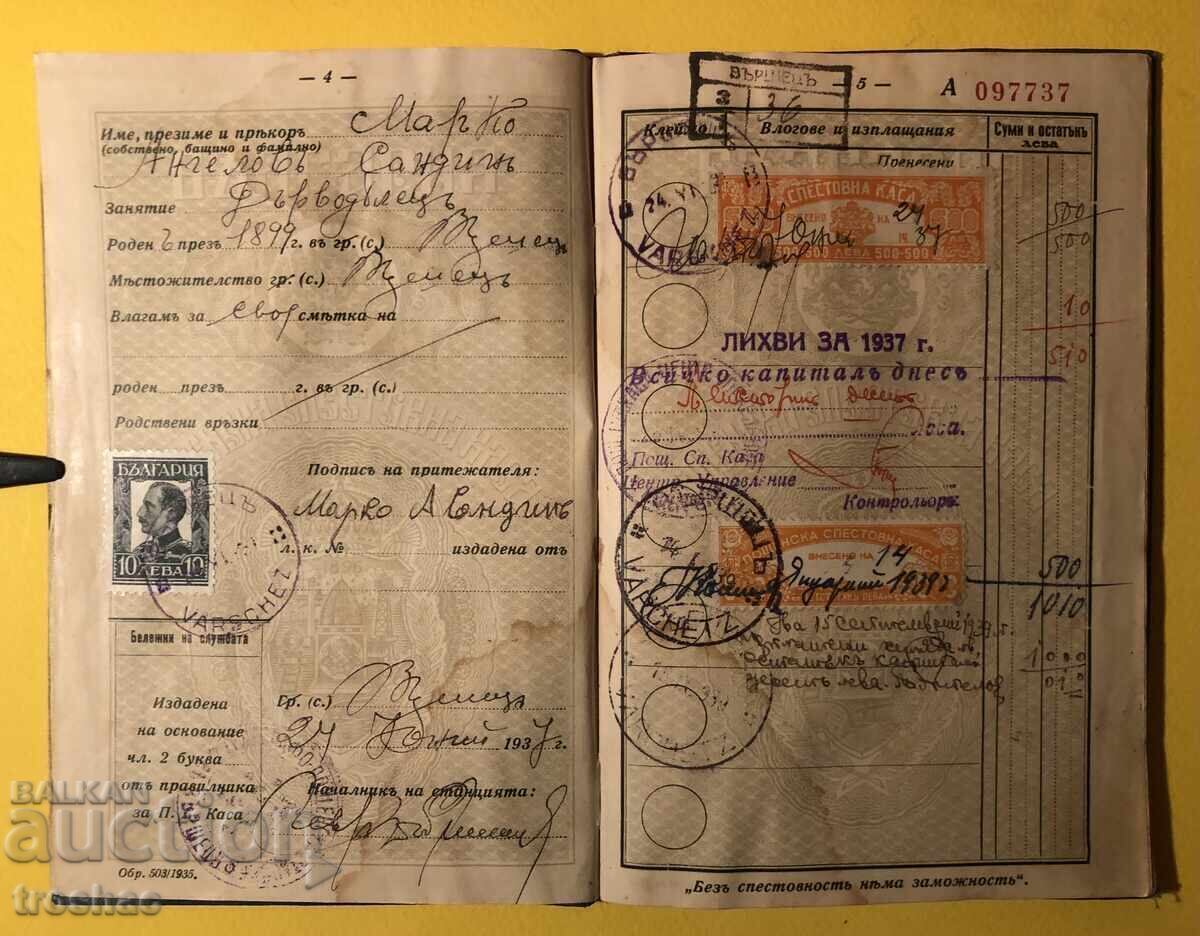 — 4 —
Име, презиме и прѣкоръ Марко
(собствено, бащино и фамилно)
Ангеловъ Сандинъ
Занятие Дърводѣлецъ
Роденъ презъ 1899 г. въ гр. (с.)
Мѣстожителство гр. (с.)
Влагамъ за своя смѣтка на
роден презъ г. въ гр. (с.)
Родствени връзки
Подписъ на притежателя:
Марко А Сандинъ
л. к. № издадена отъ
БЪЛГАРИЯ
10 ЛЕВА 10
VARSCHETZ
Бележни на службата
Издадена
на основание
чл. 2 буква
отъ правилника
за П. С. Каса
Гр. (с.)
24 Юний 1937 г.
Началникъ на станцията:
Обр. 503/1935.
BALKAN
auction
troshac
— 5 —
А 097737
ВЪРШЕЦЪ
3
36
Клеймо
Влогове и изплащания
Суми и остатъкъ
лева
Пренесени
СПЕСТОВНА КАСА
ВНЕСЕНО НА 24
Юний 37
500-500 ЛЕВА 500-500
500
500
24. VI
VARSCHETZ
10
510
ЛИХВИ ЗА 1937 г.
Всичко капиталъ днесъ
Лева.
Пощ. Сп. Каса
Центр. Управление
Контрольоръ
ПОЩЕНСКА СПЕСТОВНА КАСА
ВНЕСЕНО НА 14
Януарий 1939 г.
500
1010
VARSCHETZ
На 15 Септемврий 1939 г.
1000
010
„Безъ спестовность нѣма заможность“.